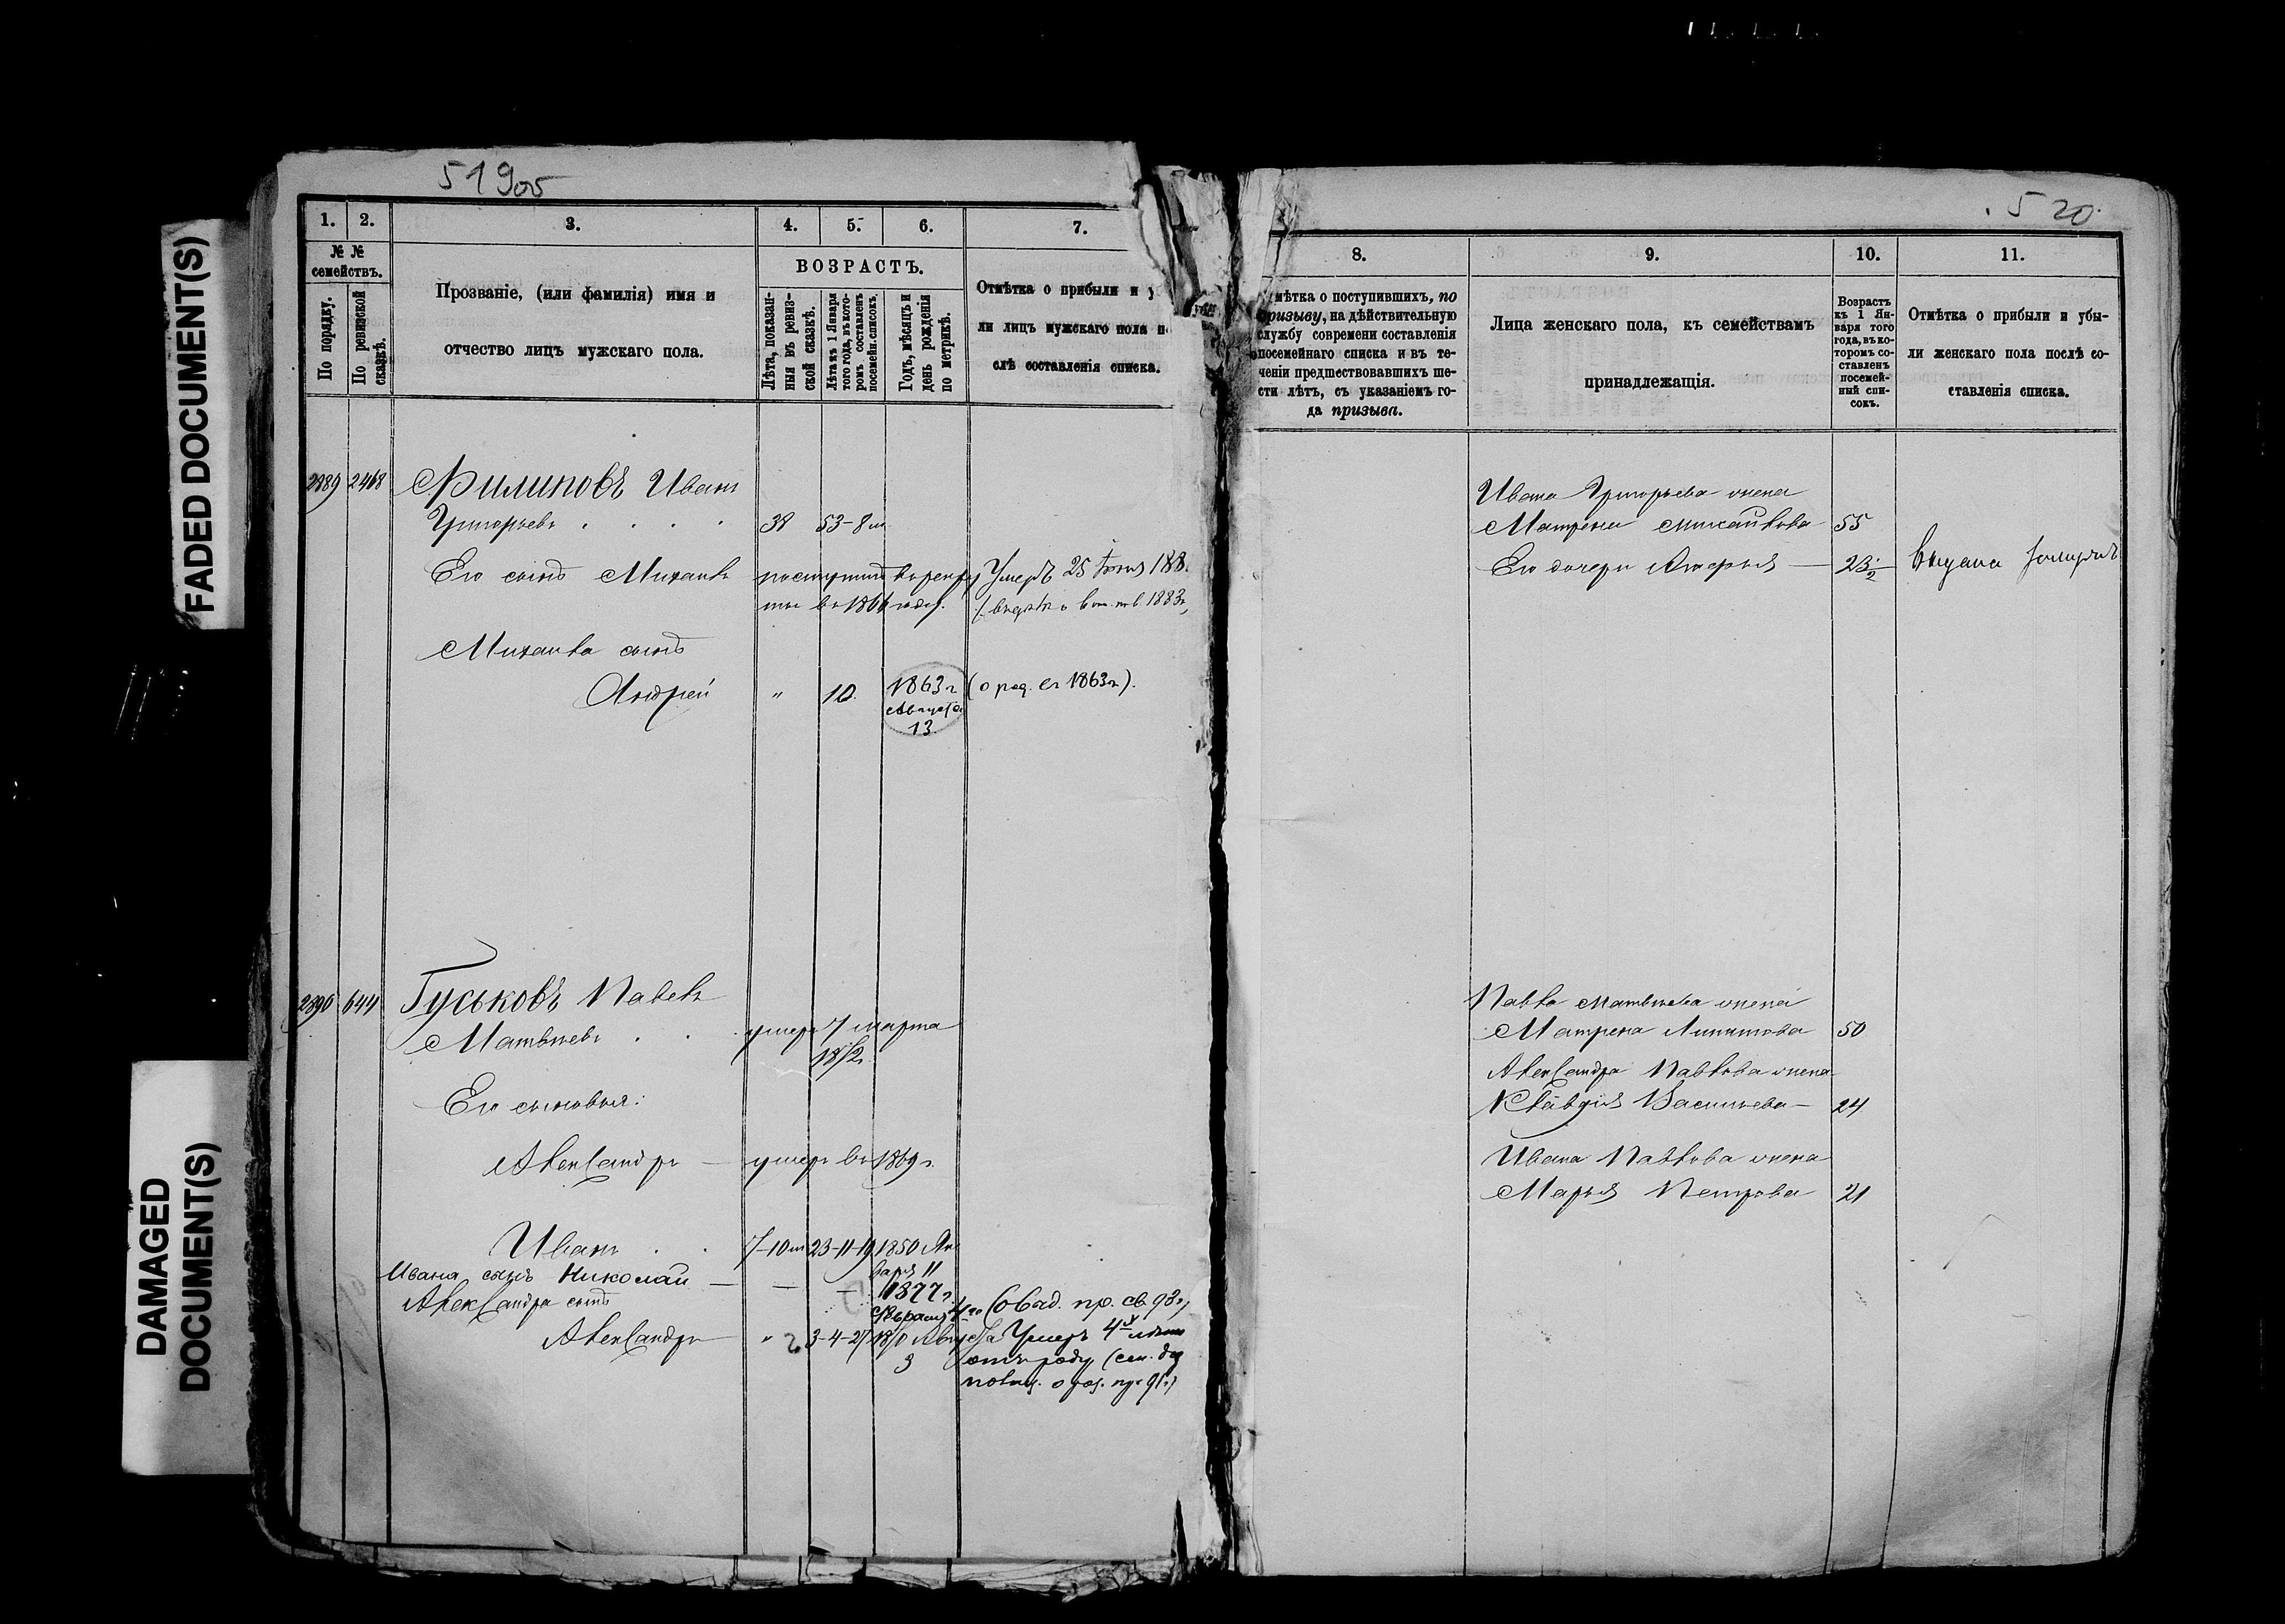 FADED DOCUMENT(S)
DAMAGED
DOCUMENT(S)
519об
1. 2. 3. 4. 5. 6. 7.
№ №
семействъ.
По порядку.
По ревизской
сказкѣ.
Прозваніе, (или фамилія) имя и
отчество лицъ мужскаго пола.
ВОЗРАСТЪ.
Лѣта, показан-
ныя въ ревиз-
ской сказкѣ.
Лѣта къ 1 Января
того года, въ кото-
ромъ составленъ
посемейн. списокъ.
Годъ, мѣсяцъ и
день рожденія
по метрикѣ.
Отмѣтка о прибыли и у
ли лицъ мужскаго пола п
слѣ составленія списка.
2389 2468 Филиповъ Иванъ
Григорьевъ . . . . 38 53-8 м
Его сынъ Михаилъ поступилъ въ рекру Умеръ 25 188
ты въ 1866 году. 1883г.
Михаила сынъ
Андрей " 10. 1863г (о рад. с. 1863г).
Августа
13
2390 644 Гуськовъ Павелъ
Матвѣевъ . . умеръ 7 марта
1872г.
Его сыновья:
Александръ — умеръ въ 1869г.
Иванъ . . 7-10 м 23-11-19 1850 Ян
варя 11
Ивана сынъ Николай — — — 1877г.
Александра сынъ
Александръ " 3-4-27 1870 Августа Умеръ 4х лѣтъ
3 отъ роду
520
8. 9. 10. 11.
мѣтка о поступившихъ, по
призыву, на дѣйствительную
службу современи составленія
посемейнаго списка и въ те-
ченіи предшествовавшихъ ше-
сти лѣтъ, съ указаніемъ го-
да призыва.
Лица женскаго пола, къ семействамъ
принадлежащія.
Возрастъ
къ 1 Ян-
варя того
года, въ ко-
торомъ со-
ставленъ
посемей-
ный спи-
сокъ.
Отмѣтка о прибыли и убы-
ли женскаго пола послѣ со-
ставленія списка.
Ивана Григорьева жена
Матрена Михайлова 55
Его дочери — 23 1/2 выдана замужъ
Павла Матвѣева жена
Матрена 50
Александра Павлова жена
Клавдія Васильева — 24
Ивана Павлова жена
Марья Петрова 21